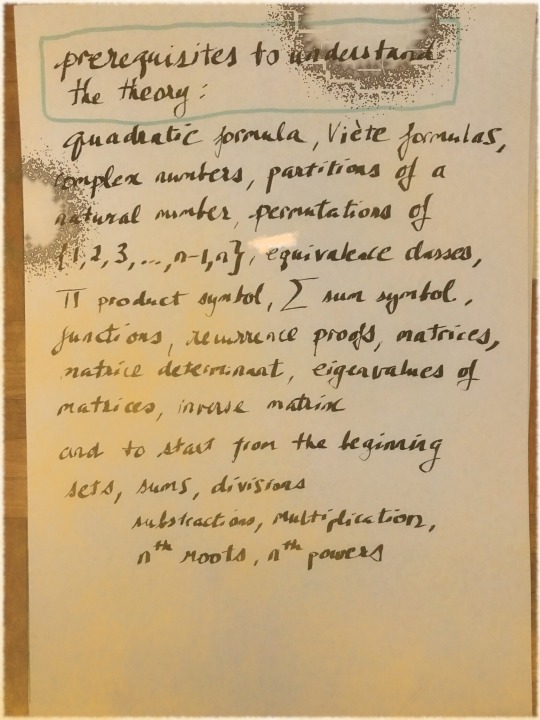 prerequisites to understand
the theory:
quadratic formula, Viète formulas,
complex numbers, partitions of a
natural number, permutations of
{1,2,3,...,n-1,n}, equivalence classes,
∏ product symbol, ∑ sum symbol,
functions, recurrence proofs, matrices,
matrice determinant, eigenvalues of
matrices, inverse matrix
and to start from the beginning
sets, sums, divisions
substractions, multiplication,
nth roots, nth powers